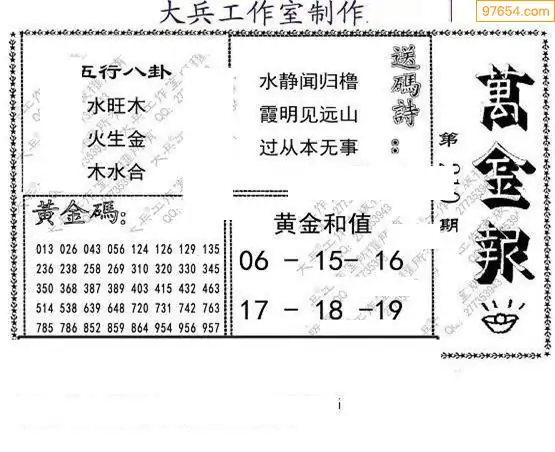 大兵工作室制作
97654.com
五行八卦
水旺木
火生金
木水合
送碼詩：
水静闻归橹
霞明见远山
过从本无事
黄金碼：
013 026 043 056 124 126 129 135
236 238 258 269 310 320 330 345
350 368 387 389 403 415 432 463
514 538 639 648 720 731 742 763
785 786 852 859 864 954 956 957
黄金和值
06 - 15- 16
17 - 18 -19
第
期
萬金報
i